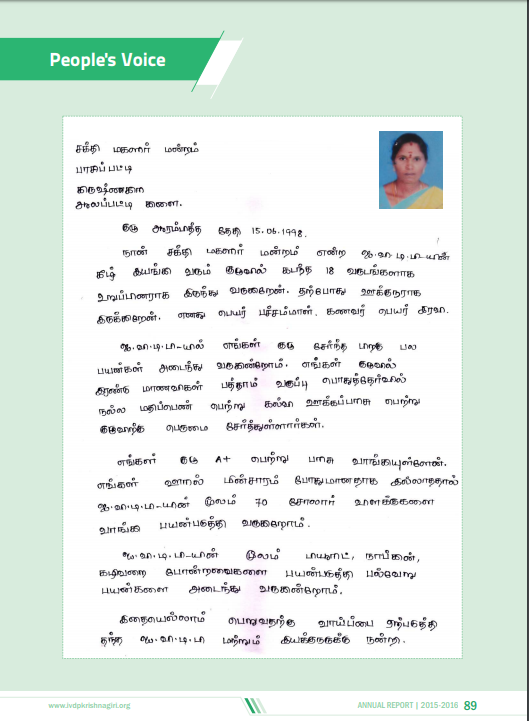 People's Voice
சக்தி மகளிர் மன்றம்
பாறைப்பட்டி
கிருஷ்ணகிரி
ஆலப்பட்டி கிளை.
குழு ஆரம்பித்த தேதி 15.06.1998.
நான் சக்தி மகளிர் மன்றம் என்ற ஐ.வி.டி.பி-யின்
கீழ் இயங்கி வரும் குழுவில் கடந்த 18 வருடங்களாக
உறுப்பினராக இருந்து வருகிறேன். தற்போது ஊக்குநராக
இருக்கிறேன். எனது பெயர் பச்சம்மாள். கணவர் பெயர்
ஐ.வி.டி.பி-யில் எங்கள் குழு சேர்ந்த பிறகு பல
பயன்கள் அடைந்து வருகின்றோம். எங்கள் குழுவில்
இரண்டு மாணவிகள் பத்தாம் வகுப்பு பொதுத்தேர்வில்
நல்ல மதிப்பெண் பெற்று கல்வி ஊக்கப்பரிசு பெற்று
குழுவிற்கு பெருமை சேர்த்துள்ளார்கள்.
எங்கள் குழு A+ பெற்று பரிசு வாங்கியுள்ளேன்.
எங்கள் ஊரில் மின்சாரம் போதுமானதாக இல்லாததால்
ஐ.வி.டி.பி-யின் மூலம் 70 சோலார் விளக்குகளை
வாங்கி பயன்படுத்தி வருகிறோம்.
ஐ.வி.டி.பி-யின் மூலம் நாப்கின்,
கழிவறை போன்றவைகளை பயன்படுத்தி பல்வேறு
பயன்களை அடைந்து வருகின்றோம்.
இதையெல்லாம் பெறுவதற்கு வாய்ப்பை ஏற்படுத்தி
தந்த ஐ.வி.டி.பி மற்றும் இயக்குநருக்கு நன்றி.
www.ivdpkrishnagiri.org
ANNUAL REPORT | 2015-2016 89